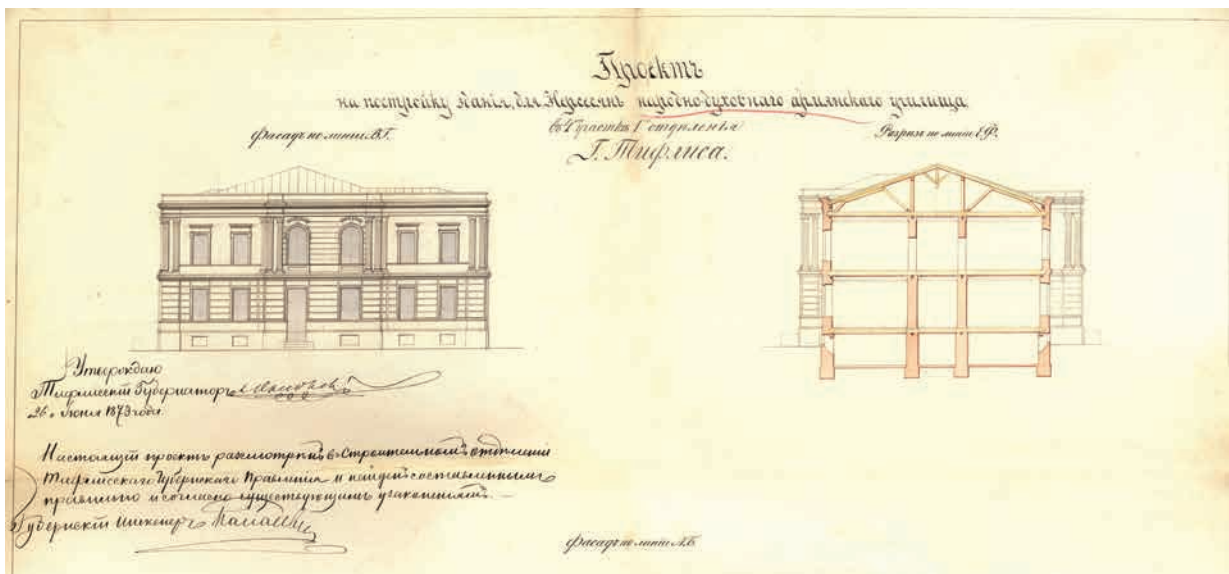 Проектъ
на постройку зданія, для Нерсесянъ народно-духовнаго армянскаго училища
въ 1 участкѣ 1 отдѣленія
Г. Тифлиса.
Фасадъ по линіи В.Г.
Разрѣзъ по линіи Е.Ф.
Утверждаю
Тифлисскій Губернаторъ
26 Іюня 1873 года.
Настоящій проектъ разсмотрѣнъ въ Строительномъ отдѣленіи
Тифлисскаго Губернскаго Правленія и найденъ составленнымъ
правильно и согласно существующимъ узаконеніямъ. —
Губернскій Инженеръ
Фасадъ по линіи А.Б.